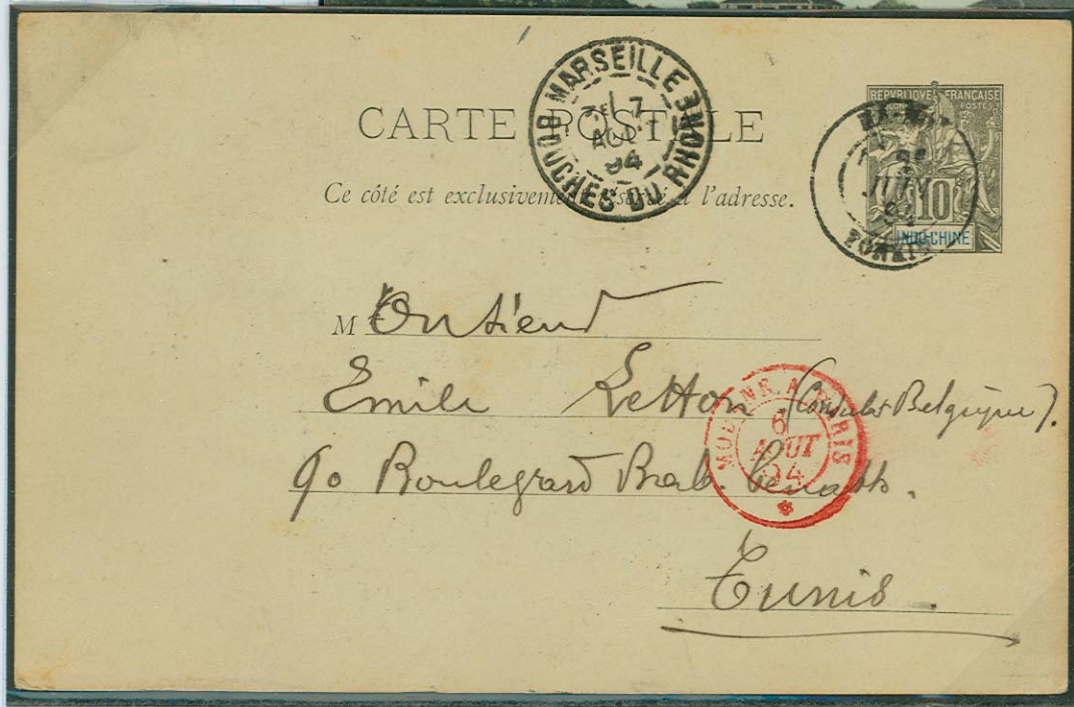 CARTE POSTALE
Ce côté est exclusivement réservé à l'adresse.
MARSEILLE
7
AOUT
94
BOUCHES DU RHONE
REPUBLIQUE FRANÇAISE
POSTES
10
INDO-CHINE
JUIN
TONKIN
Monsieur
Emile Letton (Consulat Belgique).
90 Boulegvard Bab.
Tunis.
MODANE A PARIS
6
AOUT
94